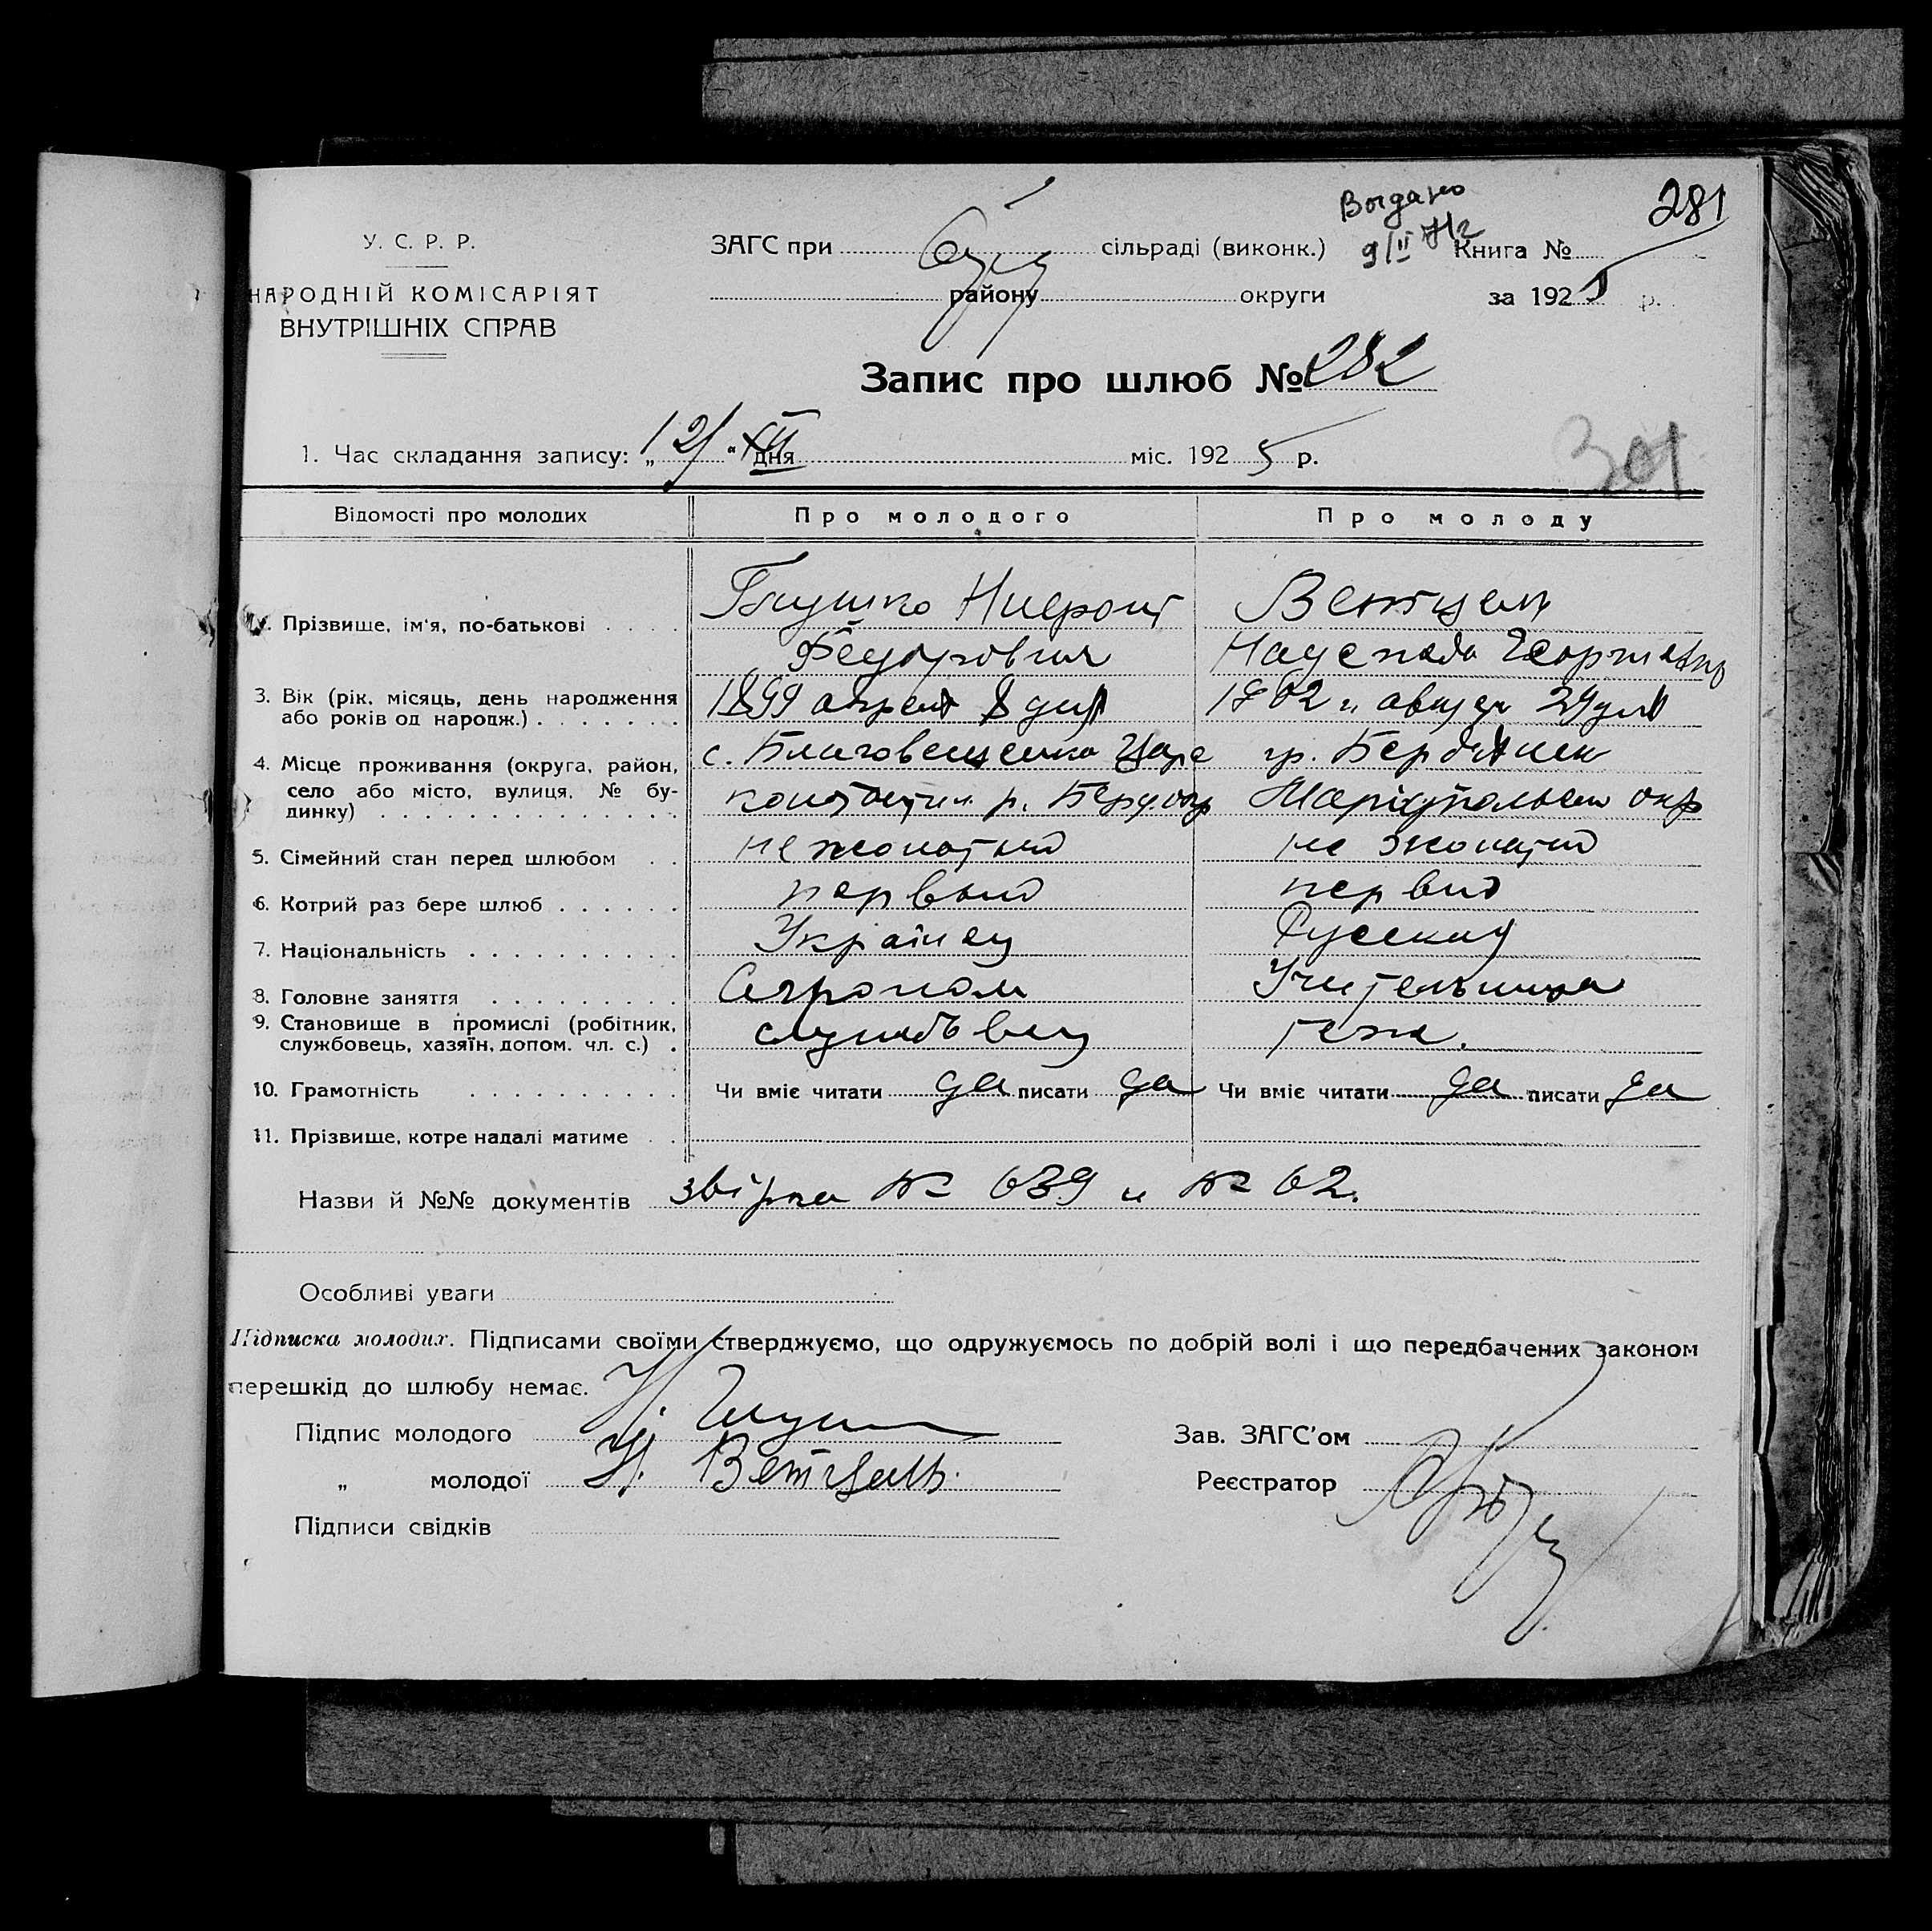 Выдано
281
У. С. Р. Р.
ЗАГС при сільраді (виконк.) 9/II Книга №
НАРОДНІЙ КОМІСАРІЯТ
ВНУТРІШНІХ СПРАВ
району округи за 1925 р.
Запис про шлюб № 282
1. Час складання запису: „12/“ XII дня міс. 1925 р.
301
Відомості про молодих Про молодого Про молоду
Прізвище, ім'я, по-батькові Глушко Венцель
Федорович Надежда Георгиевна
3. Вік (рік, місяць, день народження 1899 апреля 8 дня 1902 г. август 29 дня
або років од народж.)
4. Місце проживання (округа, район, с. Благовещенка Царе гр. Бердянск
село або місто, вулиця, № бу- константин. р. Берд. окр Маріупольськ окр
динку)
5. Сімейний стан перед шлюбом не жонатий не жонатий
6. Котрий раз бере шлюб первый первий
7. Національність Українец Русская
8. Головне заняття Агроном Учительница
9. Становище в промислі (робітник, службовец теж.
службовець, хазяїн, допом. чл. с.)
10. Грамотність Чи вміє читати да писати да Чи вміє читати да писати да
11. Прізвище, котре надалі матиме
Назви й №№ документів звірка № 639 и № 62.
Особливі уваги
Підписка молодих. Підписами своїми стверджуємо, що одружуємось по добрій волі і що передбачених законом
перешкід до шлюбу немає.
Підпис молодого Н. Зав. ЗАГС'ом
„ молодої Н. Ветцель. Реєстратор
Підписи свідків